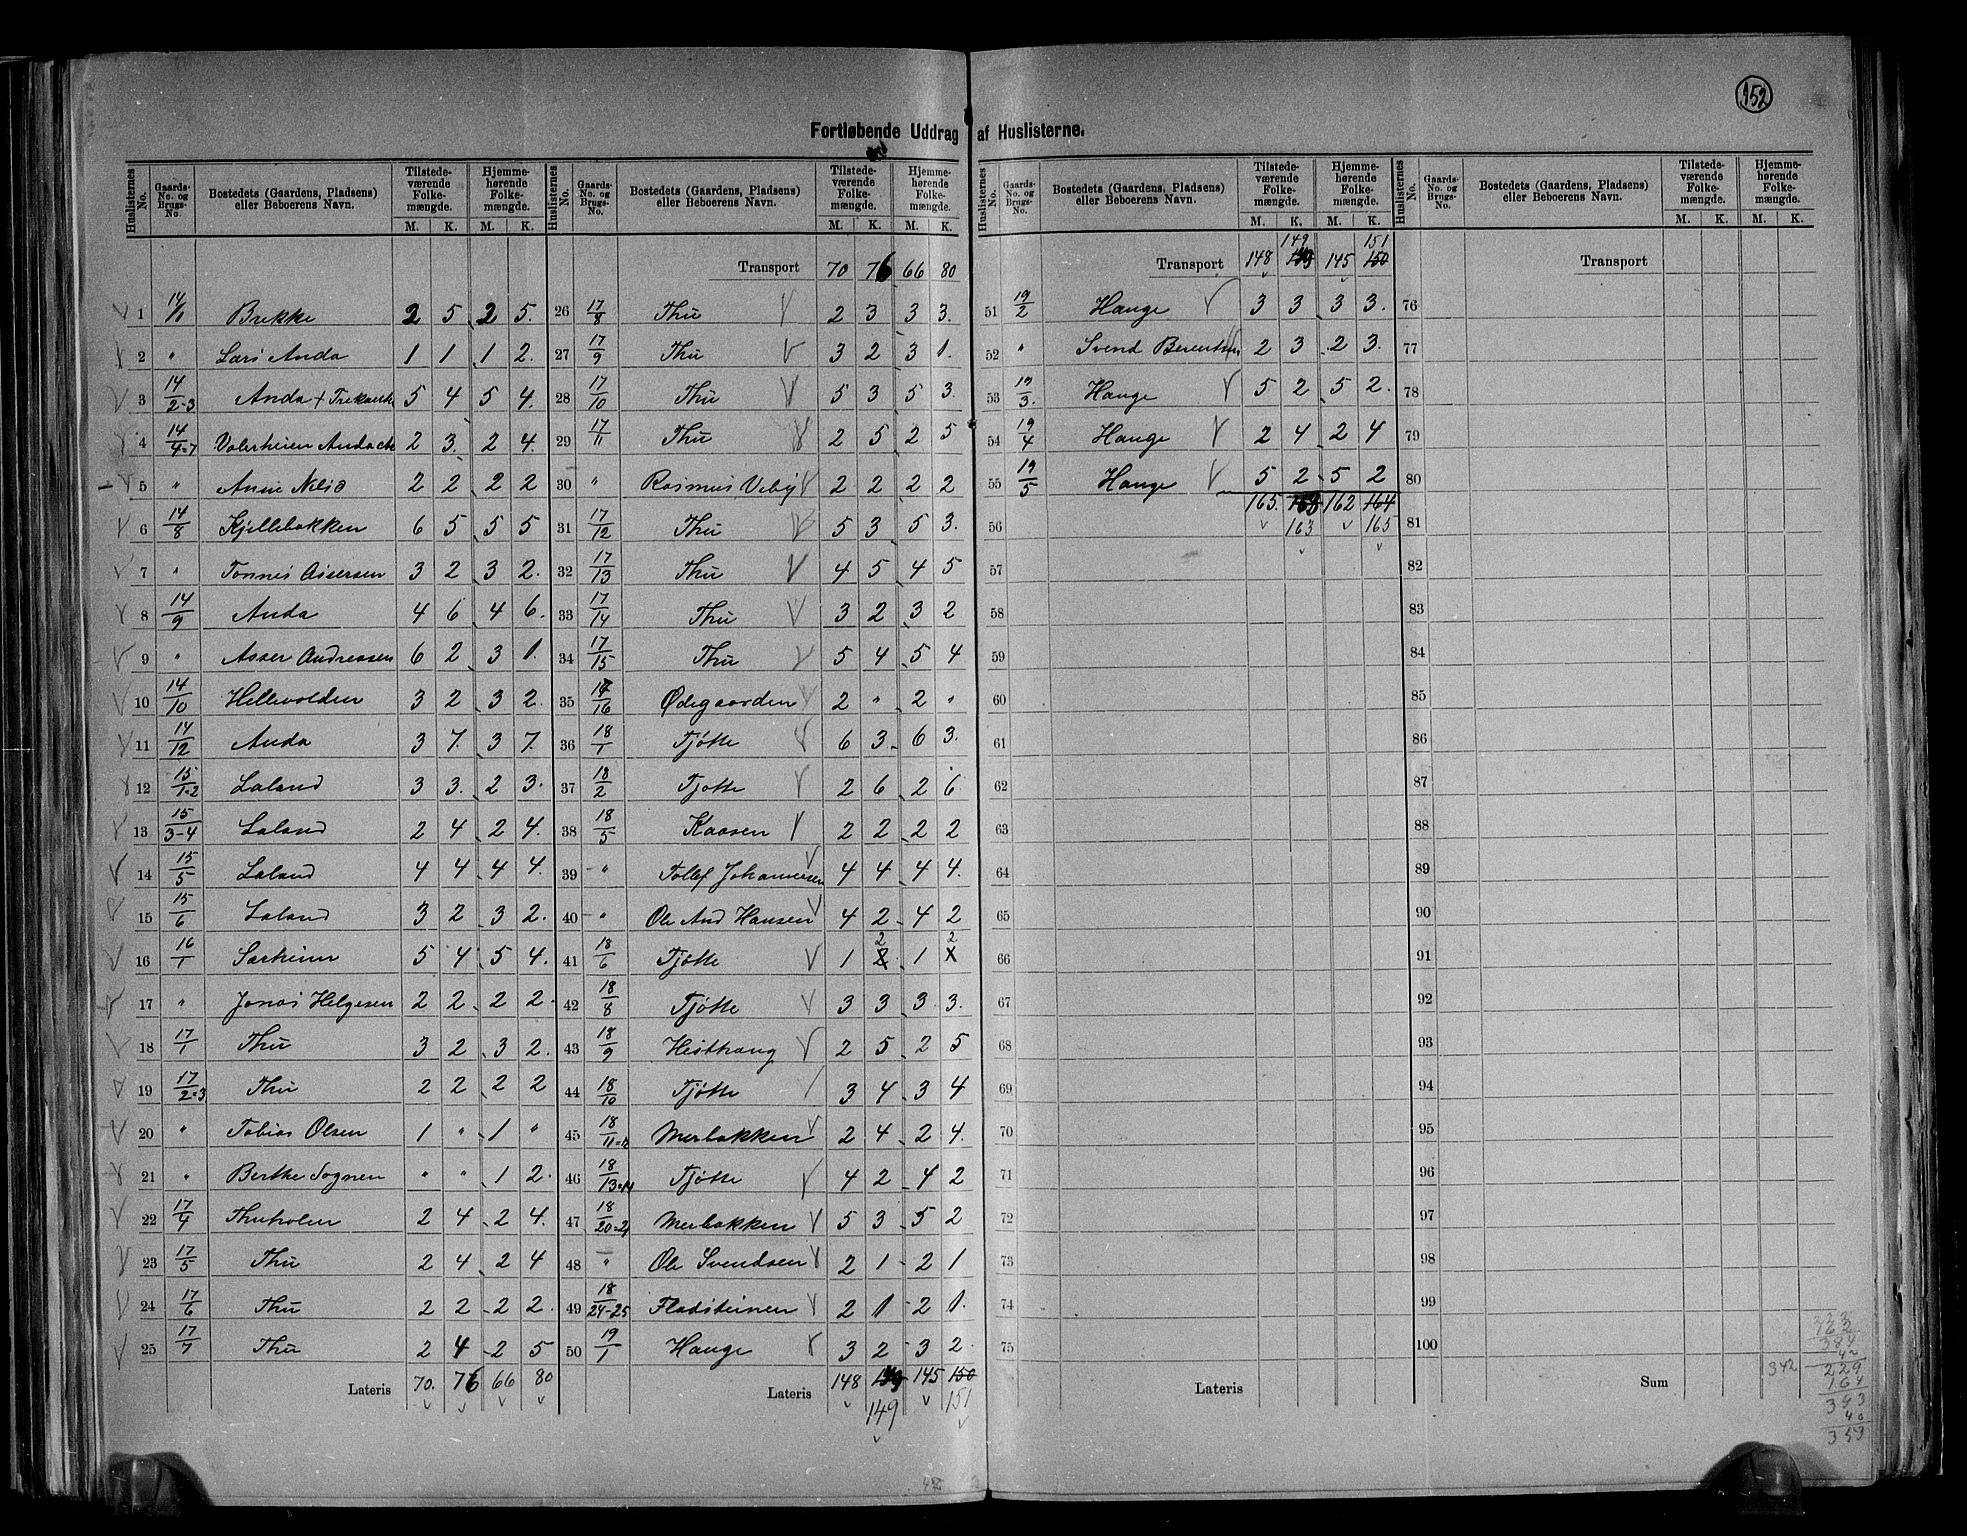 152
Fortløbende Uddrag af Huslisterne.
Huslisternes No. Gaards-No. og Brugs-No. Bostedets (Gaardens, Pladsens) eller Beboerens Navn. Tilstedeværende Folkemængde. M. K. Hjemmehørende Folkemængde. M. K.
1 14/1 Brekke 2 5 2 5.
2 " Lars Anda 1 1 1 2.
3 14/2-3 Anda + 5 4 5 4.
4 14/4-7 2 3. 2 4.
5 " 2 2 2 2
6 14/8 Kjellebakken 6 5 5 5
7 " Tønnes Assersen 3 2 3 2.
8 14/9 Anda 4 6 4 6.
9 " Asser Andreassen 6 2 3 1.
10 14/10 Hellevolden 3 2 3 2.
11 14/12 Anda 3 7. 3 7.
12 15/1-2 Laland 3 3. 2 3.
13 15/3-4 Laland 2 4 2 4.
14 15/5 Laland 4 4 4 4.
15 15/6 Laland 3 2 3 2.
16 16/1 Sarheim 5 4 5 4.
17 " Jonas Helgesen 2 2 2 2.
18 17/1 Thu 3 2 3 2.
19 17/2-3 Thu 2 2 2 2
20 " Tobias Olsen 1 " 1 "
21 " Berthe Sognen " " 1 2.
22 17/4 Thuholen 2 4 2 4.
23 17/5 Thu 2 4 2 4
24 17/6 Thu 2 2 2 2.
25 17/7 Thu 2 4 2 5
Lateris 70. 76 66 80
Huslisternes No. Gaards-No. og Brugs-No. Bostedets (Gaardens, Pladsens) eller Beboerens Navn. Tilstedeværende Folkemængde. M. K. Hjemmehørende Folkemængde. M. K.
Transport 70 76 66 80
26 17/8 Thu 2 3 3 3.
27 17/9 Thu 3 2 3 1.
28 17/10 Thu 5 3 5 3.
29 17/11 Thu 2 5 2 5
30 " Rasmus Veby 2 2 2 2
31 17/12 Thu 5 3 5 3.
32 17/13 Thu 4 5 4 5
33 17/14 Thu 3 2 3 2
34 17/15 Thu 5 4 5 4
35 17/16 Ødegaarden 2 " 2 "
36 18/1 Tjøtte 6 3 6 3.
37 18/2 Tjøtte 2 6 2 6
38 18/5 Kaasen 2 2 2 2
39 " Tollef Johannesen 4 4 4 4.
40 " Ole And Hansen 4 2 4 2
41 18/6 Tjøtte 1 2 1 2
42 18/8 Tjøtte 3 3 3 3.
43 18/9 Hesthaug 2 5 2 5
44 18/10 Tjøtte 3 4 3 4
45 18/11-12 Merbakken 2 4 2 4.
46 18/13-14 Tjøtte 4 2 4 2
47 18/20-21 Merbakken 5 3 5 2
48 " Ole Svendsen 2 1 2 1
49 18/24-25 Fladsteinen 2 1 2 1.
50 19/1 Hauge 3 2 3 2.
Lateris 148 145 150
149 151
42
Huslisternes No. Gaards-No. og Brugs-No. Bostedets (Gaardens, Pladsens) eller Beboerens Navn. Tilstedeværende Folkemængde. M. K. Hjemmehørende Folkemængde. M. K.
149 151
Transport 148 145 150
51 19/2 Hauge 3 3 3 3.
52 " Svend Berentsen 2 3 2 3.
53 19/3. Hauge 5 2 5 2.
54 19/4 Hauge 2 4 2 4
55 19/5 Hauge 5 2 5 2
165. 162 164
56 163 165
57
58
59
60
61
62
63
64
65
66
67
68
69
70
71
72
73
74
75
Lateris
Huslisternes No. Gaards-No. og Brugs-No. Bostedets (Gaardens, Pladsens) eller Beboerens Navn. Tilstedeværende Folkemængde. M. K. Hjemmehørende Folkemængde. M. K.
Transport
76
77
78
79
80
81
82
83
84
85
86
87
88
89
90
91
92
93
94
95
96
97
98
99
100
384
42
342 229
164
393
40
359
Sum